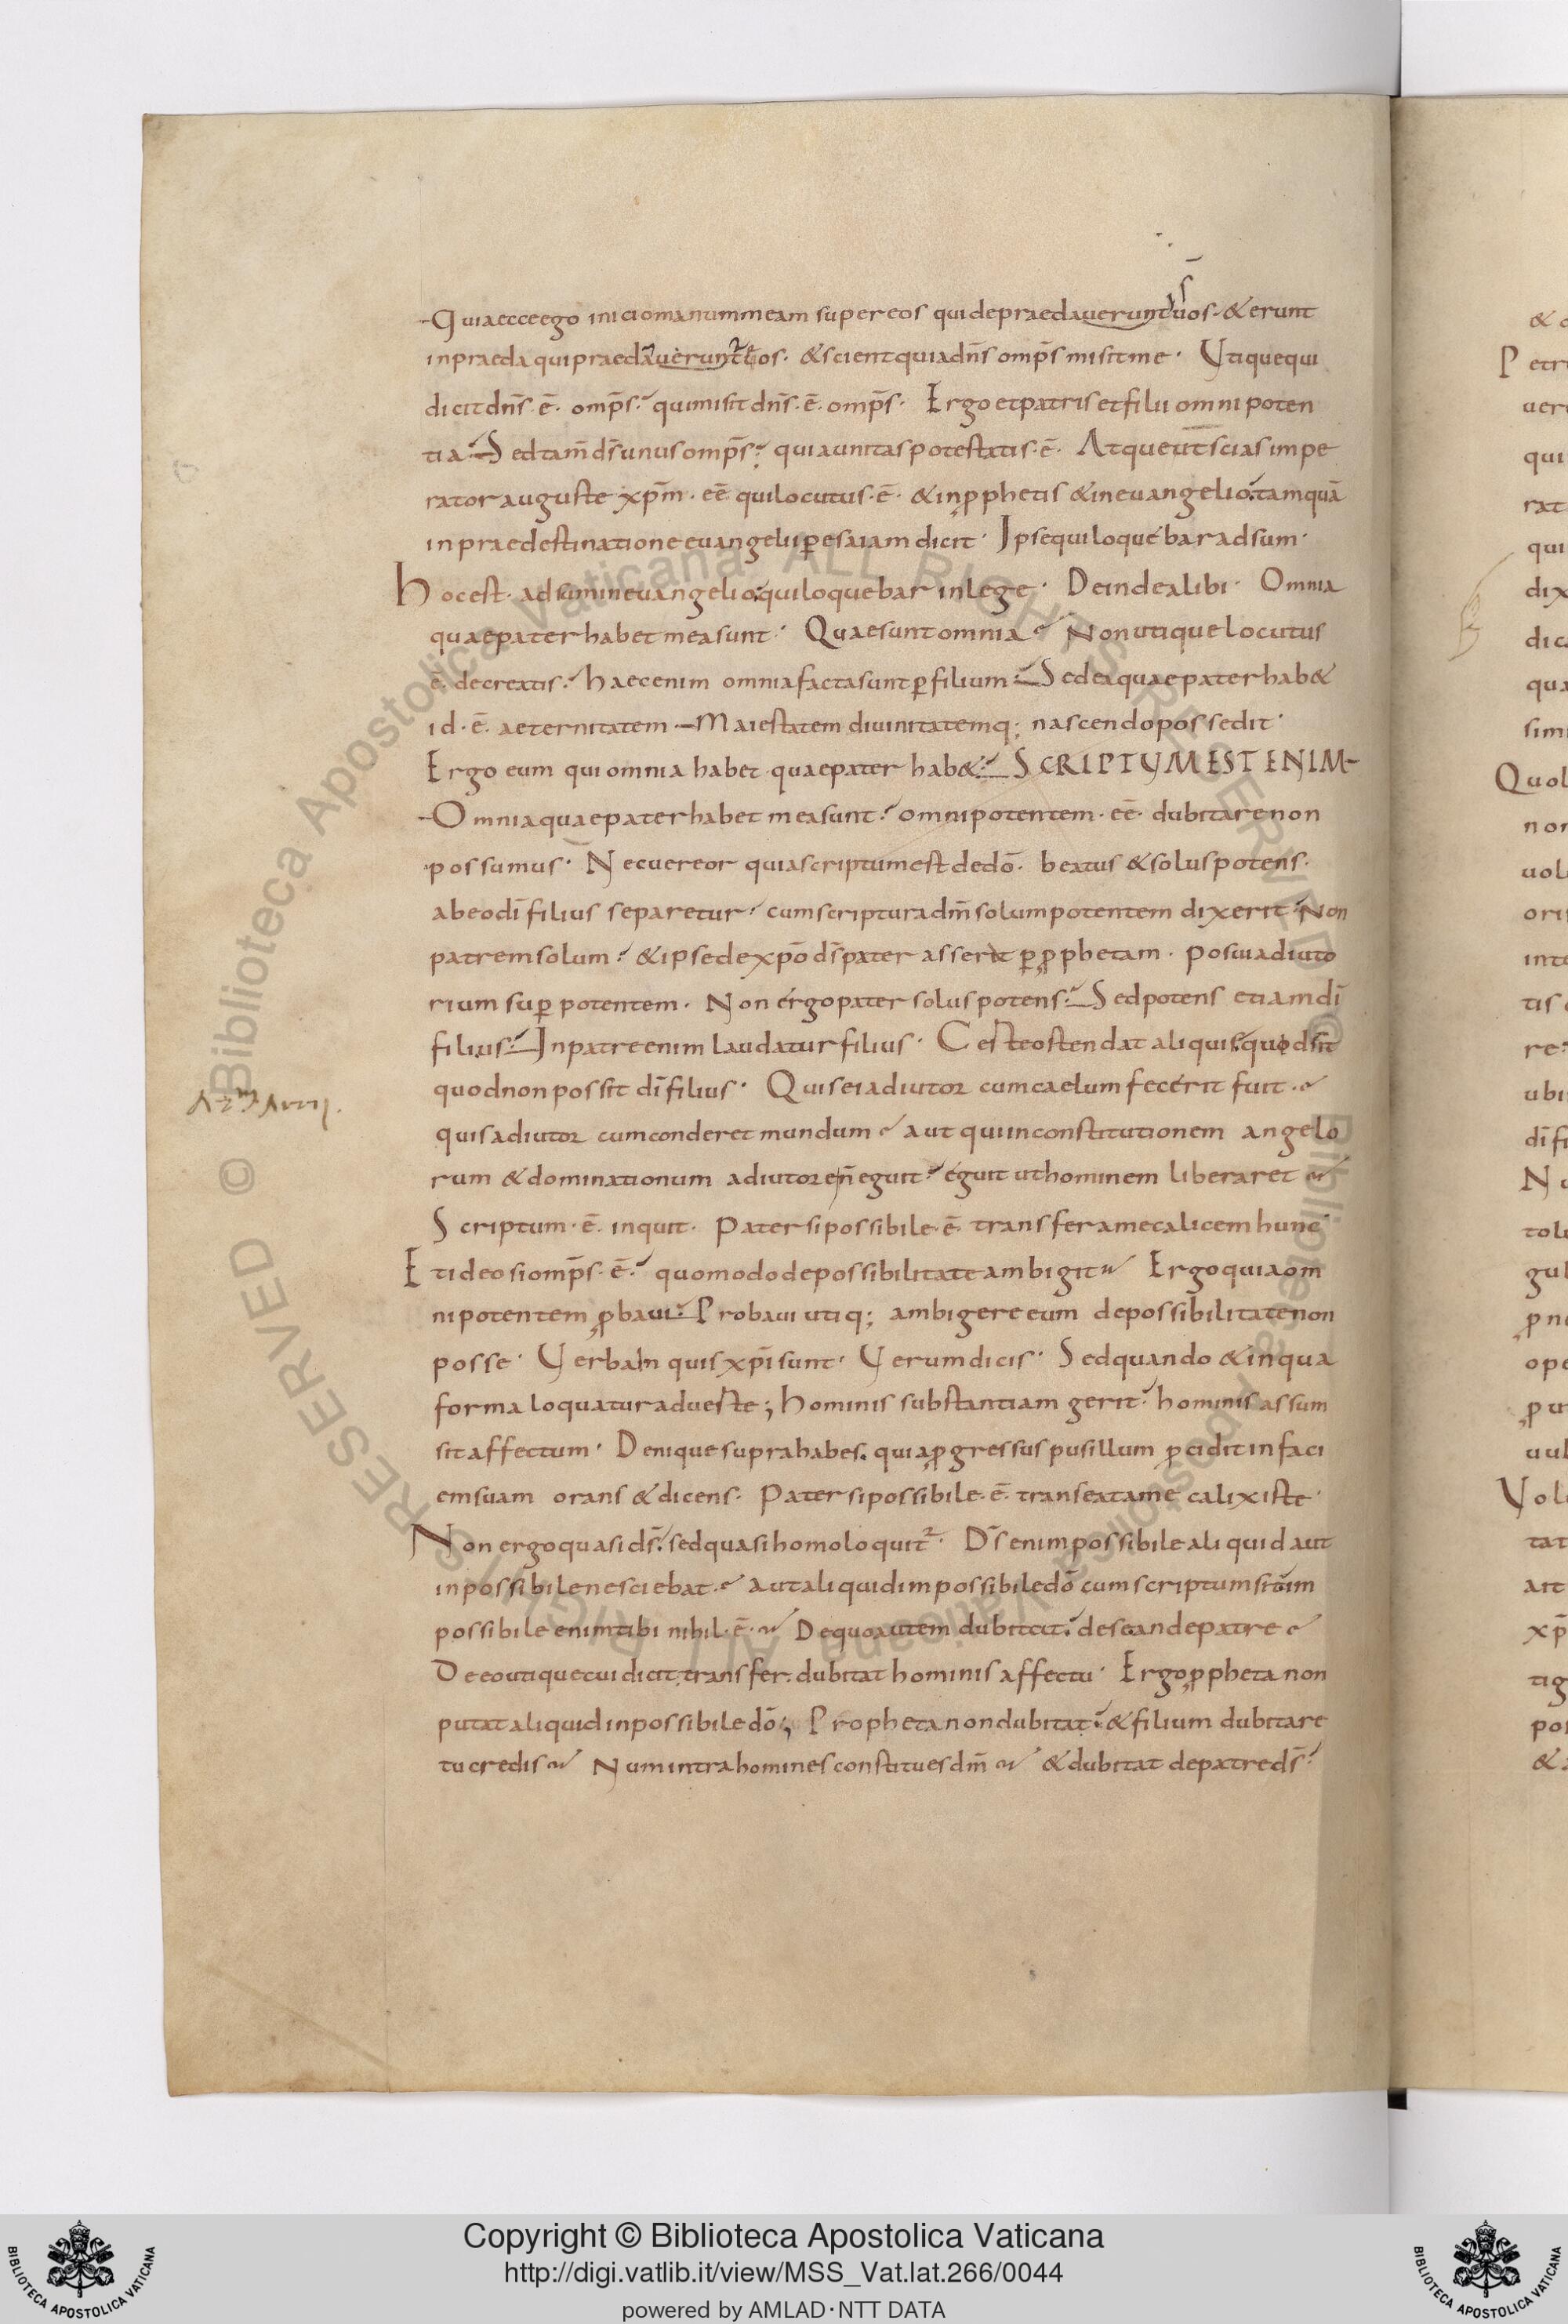 Quia ecce ego inicio manum meam super eos qui depraedaverunt vos· & erunt
in praeda qui praedaverunt eos· & scient quia dn̄s omp̄s misit me· Utique qui
dicit dn̄s· ē· omp̄s· qui misit dn̄s· ē· omp̄s· Ergo et patris et filii omnipoten
tia· Sed tam̄ ds̄ unus omp̄s· quia unitas potestatis· ē· Atque ut scias impe
rator auguste xp̄m· eē qui locutus· ē· & in ꝓphetis & in evangelio· tamquā
in praedestinatione evangelii ꝑ esaiam dicit· Ipse qui loquebar adsum·
Hoc est· adsum in evangelio qui loquebar in lege· Deinde alibi· Omnia
quae pater habet mea sunt· Quae sunt omnia? Non utique locutus
ē· de creatis· haec enim omnia facta sunt ꝑ filium· Sed ea quae pater hab&
id· ē· aeternitatem Maiestatem divinitatemq; nascendo possedit·
Ergo eum qui omnia habet quae pater hab&· SCRIPTUM EST ENIM
Omnia quae pater habet mea sunt· omnipotentem· eē· dubitare non
possumus· Nec vereor quia scriptum est de dō· beatus & solus potens·
ab eo dī filius separetur· cum scriptura dm̄ solum potentem dixerit· Non
patrem solum· & ipse de xp̄o ds̄ pater asserit ꝑ ꝓphetam· posui adiuto
rium suꝑ potentem· Non ergo pater solus potens· Sed potens etiam dī
filius· In patre enim laudatur filius· Certe ostendat aliquis quod sit
quod non possit dī filius· Quis ei adiutor cum caelum fecerit fuit·?
quis adiutor cum conderet mundum? aut qui in constitutionem angelo
rum & dominationum adiutore n̄ eguit· eguit ut hominem liberaret?
Scriptum· ē· inquit· Pater si possibile· ē· transfer a me calicem hunc
Et ideo si omp̄s· ē· quomodo de possibilitate ambigit? Ergo quia om
nipotentem ꝓbavi· Probavi utiq; ambigere eum de possibilitate non
posse· Verba inquis xp̄i sunt· Verum dicis· Sed quando & in qua
forma loquatur adverte; hominis substantiam gerit· hominis assum
sit affectum· Denique supra habes· quia ꝓgressus pusillum ꝓcidit in faci
em suam orans & dicens· Pater si possibile· ē· transeat a me calix iste·
Non ergo quasi ds̄· sed quasi homo loquit᷑· Ds̄ enim possibile aliquid aut
inpossibile nesciebat·? aut aliquid impossibile dō cum scriptum sit im
possibile enim tibi nihil· ē·? De quo autem dubitat· de se an de patre?
De eo utique cui dicit transfer· dubitat hominis affectu· Ergo ꝓpheta non
putat aliquid inpossibile dō; Propheta non dubitat· & filium dubitare
tu credis? Num intra homines constitues dm̄? & dubitat de patre ds̄
Copyright © Biblioteca Apostolica Vaticana
http://digi.vatlib.it/view/MSS_Vat.lat.266/0044
powered by AMLAD·NTT DATA
BIBLIOTECA APOSTOLICA VATICANA
BIBLIOTECA APOSTOLICA VATICANA